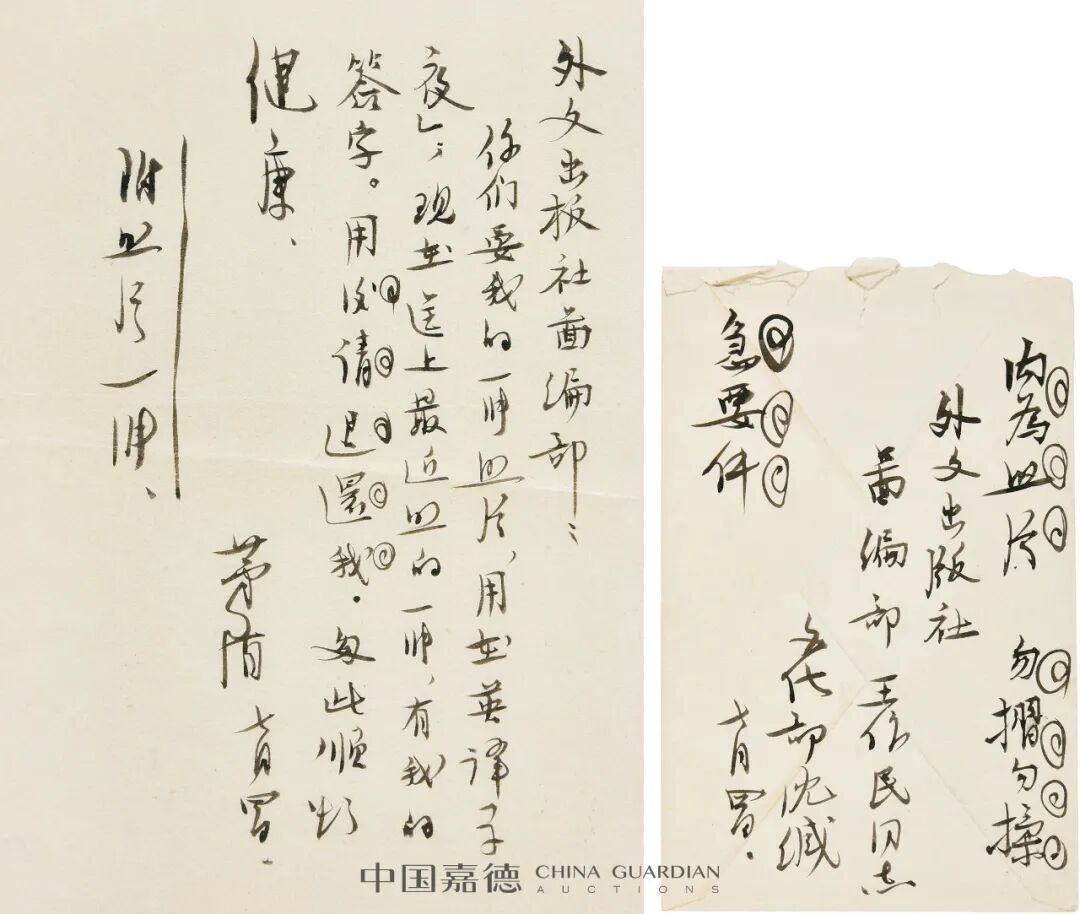 外文出板社啚编部：
你们要我的一帧照片，用在英译子
夜」，现在送上最近照的一帧，有我的
签字。用后请退还我。匆此顺颂
健康、
茅盾 七月四日.
附照片一帧、
内为照片 勿摺勿揉
外文出版社
啚编部 王作民同志
文化部沈缄
急要件 七月四日.
中国嘉德 CHINA GUARDIAN
AUCTIONS